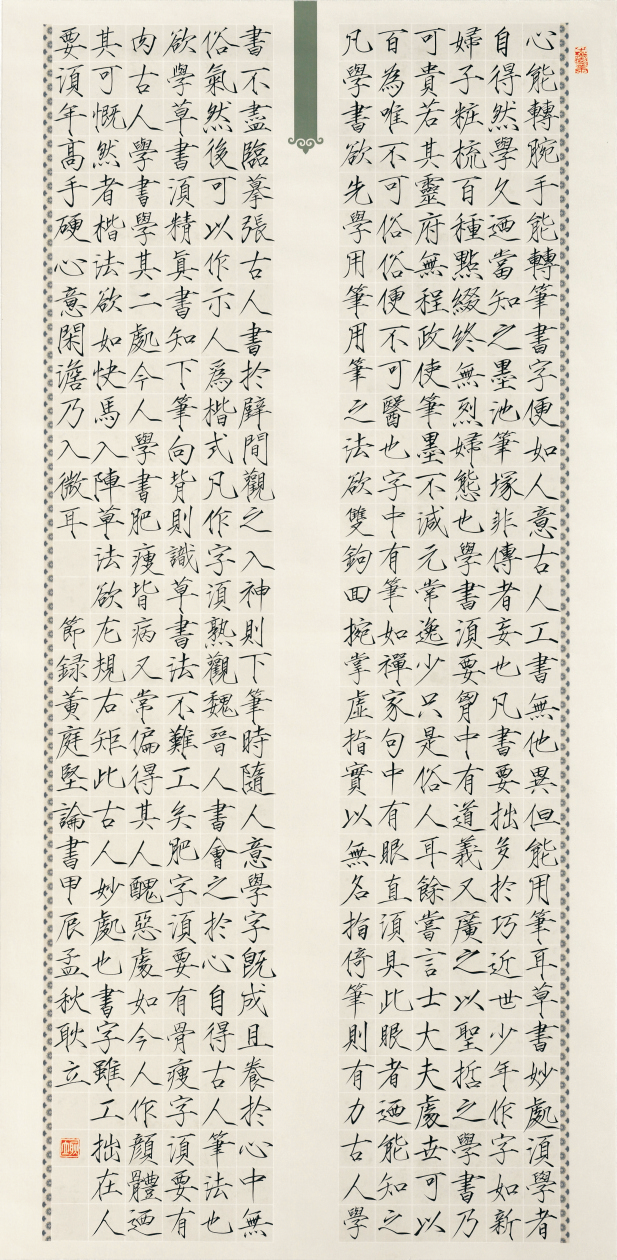 心能轉腕手能轉筆書字便如人意古人工書無他異但能用筆耳草書妙處須學者
自得然學久迺當知之墨池筆塚非傳者妄也凡書要拙多於巧近世少年作字如新
婦子粧梳百種點綴終無烈婦態也學書須要胷中有道義又廣之以聖哲之學書乃
可貴若其靈府無程政使筆墨不減元常逸少只是俗人耳餘嘗言士大夫處世可以
百為唯不可俗俗便不可醫也字中有筆如禪家句中有眼直須具此眼者迺能知之
凡學書欲先學用筆用筆之法欲雙鉤回捥掌虛指實以無名指倚筆則有力古人學
書不盡臨摹張古人書於壁間觀之入神則下筆時隨人意學字既成且養於心中無
俗氣然後可以作示人爲楷式凡作字須熟觀魏晉人書會之於心自得古人筆法也
欲學草書須精真書知下筆向背則識草書法不難工矣肥字須要有骨瘦字須要有
肉古人學書學其二處今人學書肥瘦皆病又常偏得其人醜惡處如今人作顔體迺
其可慨然者楷法欲如快馬入陣草法欲左規右矩此古人妙處也書字雖工拙在人
要須年高手硬心意閑澹乃入微耳 節録黃庭堅論書甲辰孟秋耿立